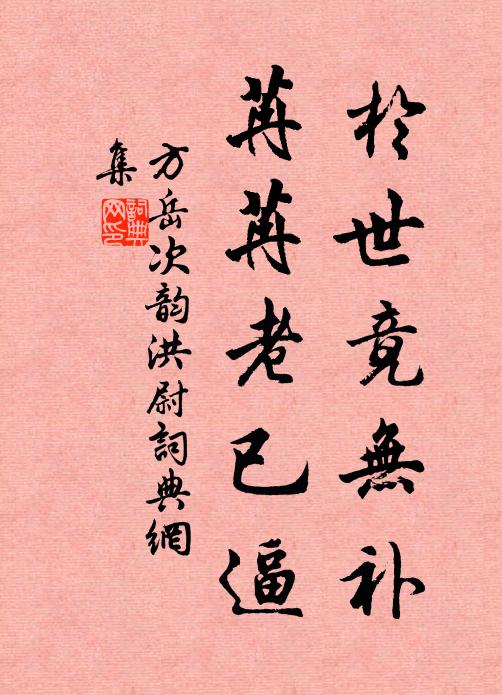 於世竟無补
苒苒老已逼
方岳次韵洪尉詞典網
集
詞典
网印